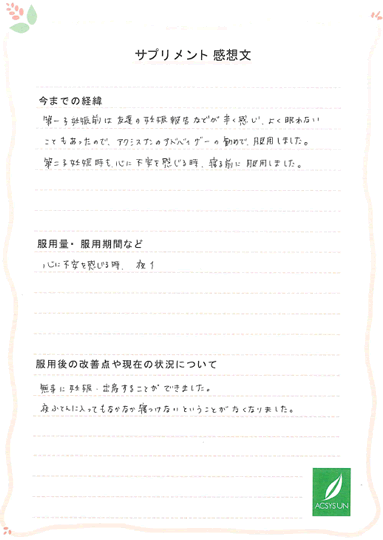 サプリメント 感想文
今までの経緯
第一子妊娠前は友達の妊娠報告などが辛く感じ、よく眠れない
こともあったので、アクシスアンのアドバイザーの勧めで、服用しました。
第二子妊娠時も心に不安を感じる時、寝る前に服用しました。
服用量・服用期間など
心に不安を感じる時、夜1
服用後の改善点や現在の状況について
無事に妊娠・出産することができました。
夜ふとんに入ってもなかなか寝つけないということがなくなりました。
ACSYSUN